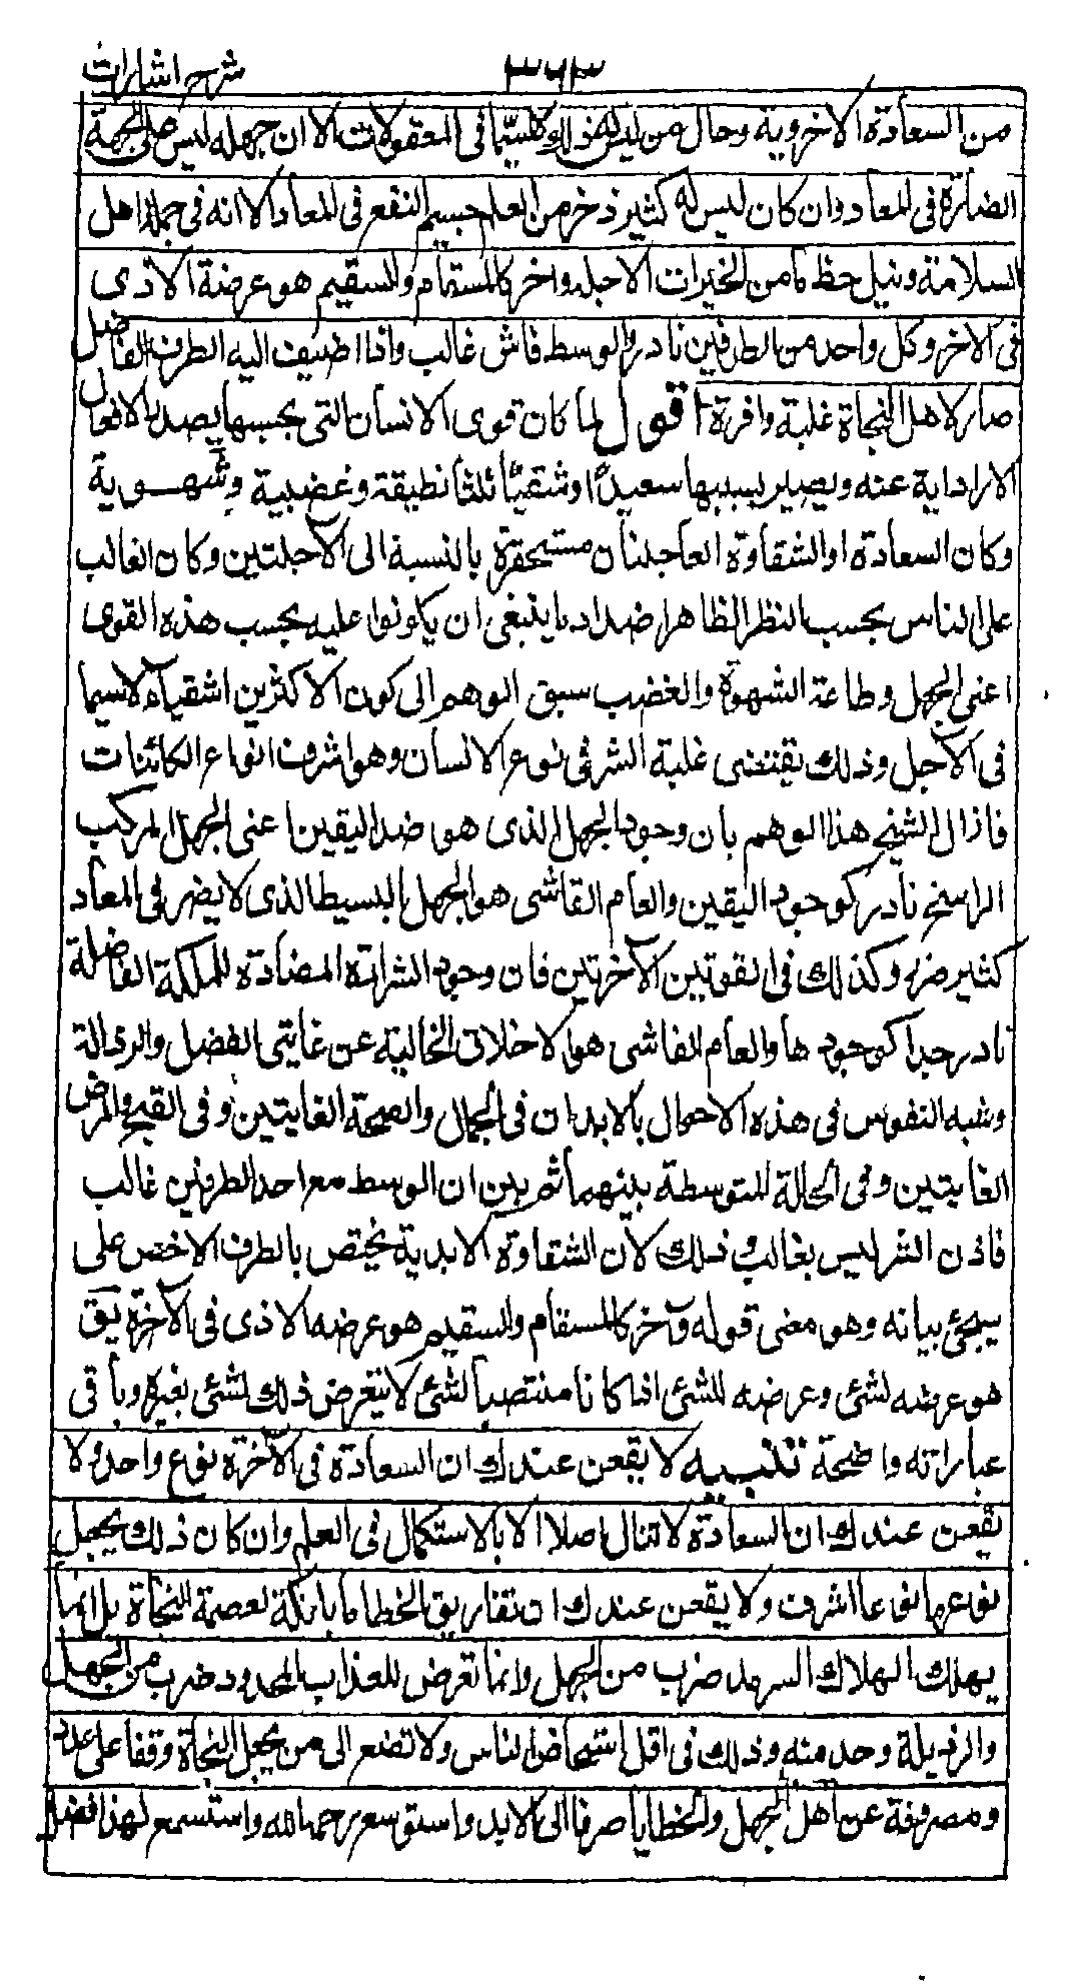 شرح اشارات
٣٦٣
من السعادة الاخروية وحال من ليس له ذلك لاسيما في المعقولات الا ان جهله ليس على الجهة
الضارة في المعاد وان كان ليس له كثير ذخر من العلم جسيم النفع في المعاد الا انه في جملة اهل
السلامة ونيل حظ ما من الخيرات الآجلة واخر كالمسقام والسقيم هو عرضة الاذى
في الآخرة وكل واحد من الطرفين نادر والوسط فاش غالب واذا اضيف اليه الطرف الفاضل
صار لاهل النجاة غلبة وافرة اقول لما كان قوى الانسان التي بحسبها يصدر الافعال
الارادية عنه ويصير بسببها سعيدًا او شقيًا ثلثا نطيقة وغضبية وشهوية
وكان السعادة او الشقاوة العاجلتان مستحقرة بالنسبة الى الآجلتين وكان الغالب
على الناس بحسب النظر الظاهر اضداد ما ينبغي ان يكونوا عليه بحسب هذه القوى
اعني الجهل وطاعة الشهوة والغضب سبق الوهم الى كون الاكثرين اشقياء لاسيما
في الآجل وذلك يقتضى غلبة الشر في نوع الانسان وهو اشرف انواع الكائنات
فازال الشيخ هذا الوهم بان وجود الجهل الذى هو ضد اليقين اعنى الجهل المركب
الراسخ نادر كوجود اليقين والعام الفاشى هو الجهل البسيط الذى لا يضر في المعاد
كثير ضر وكذلك في القوتين الآخرتين فان وجود الشرارة المضادة للملكة الفاضلة
نادر جدا كوجودها والعام الفاشى هو الاخلاق الخالية عن غايتى الفضل والرذالة
وشبه النفوس في هذه الاحوال بالابدان في الجمال والصحة الغايتين وفى القبح والمرض
الغايتين وفى الحالة المتوسطة بينهما ثم بين ان الوسط مع احد الطرفين غالب
فاذن الشر ليس بغالب وذلك لان الشقاوة الابدية يختص بالطرف الاخص على
سيجئ بيانه وهو معنى قوله وآخر كالمسقام والسقيم هو عرضه الاذى في الآخرة يق
هو عرضه لشئ وعرضه للشئ اذا كانا منتصبا لشئ لا يتعرض ذلك لشئ بغيره وباقى
عباراته واضحة تنبيه لا يقعن عندك ان السعادة في الآخرة نوع واحد ولا
يقعن عندك ان السعادة لا تنال اصلا الا بالاستكمال في العلم وان كان ذلك يجعل
نوعها نوعا اشرف ولا يقعن عندك ان تفاريق الخطايا باتكة لعصمة النجاة بل انما
يهلك الهلاك السرمد ضرب من الجهل وانما تعرض للعذاب المحدود ضرب من الجهل
والرذيلة وحد منه وذلك في اقل اشخاص الناس ولا تصغ الى من يجعل النجاة وقفا على عدد
ومصروفة عن اهل الجهل والخطايا صرفا الى الابد واستوسع رحمة الله واستسمع لهذا فضل